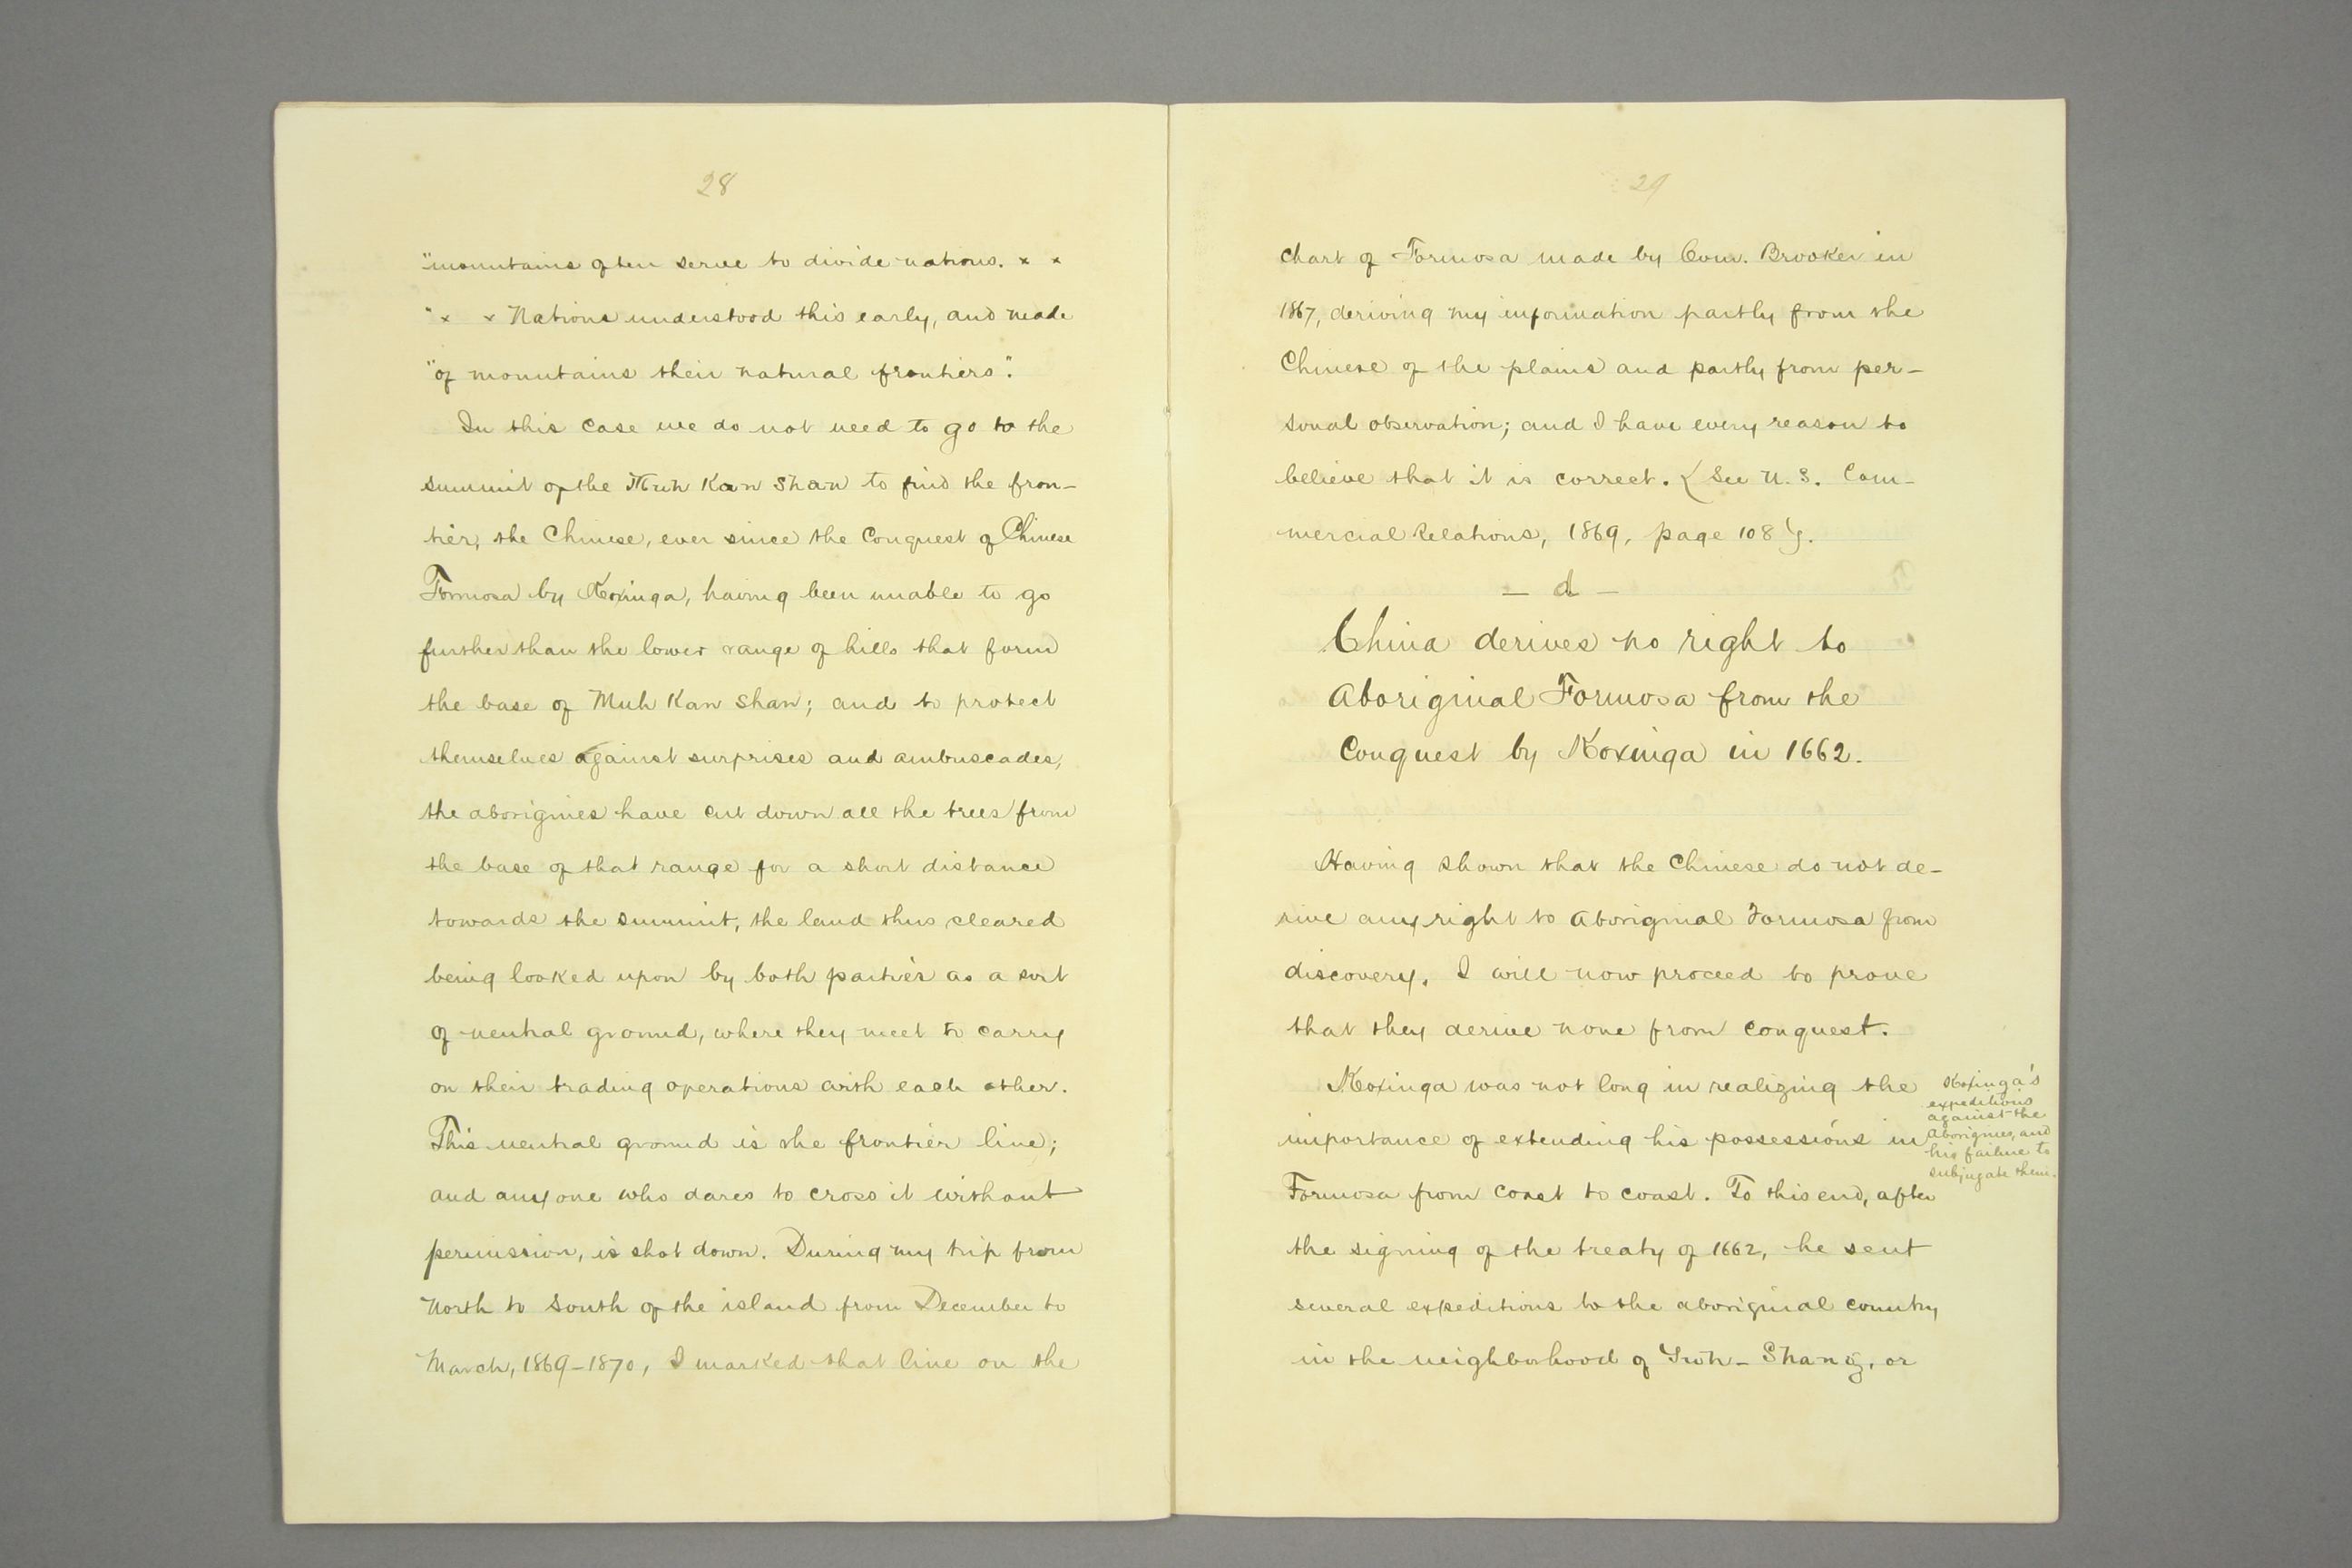 28
"mountains often serve to divide nations. × ×
"× × Nations understood this early, and made
"of mountains their natural frontiers."
In this case we do not need to go to the
summit of the Muh Kan Shan to find the fron-
tier, the Chinese, ever since the Conquest of Chinese
Formosa by Koxinga, having been unable to go
further than the lower range of hills that form
the base of Muh Kan Shan; and to protect
themselves against surprises and ambuscades,
the aborigines have cut down all the trees from
the base of that range for a short distance
towards the summit, the land thus cleared
being looked upon by both parties as a sort
of neutral ground, where they meet to carry
on their trading operations with each other.
This neutral ground is the frontier line;
and any one who dares to cross it without
permission, is shot down. During my trip from
North to South of the island from December to
March, 1869–1870, I marked that line on the
29
chart of Formosa made by Com. Brooker in
1867, deriving my information partly from the
Chinese of the plains and partly from per-
sonal observation; and I have every reason to
believe that it is correct. (See U. S. Com-
mercial Relations, 1869, page 108).
– d –
China derives no right to
Aboriginal Formosa from the
Conquest by Koxinga in 1662.
Having shown that the Chinese do not de-
rive any right to Aboriginal Formosa from
discovery, I will now proceed to prove
that they derive none from conquest.
Koxinga was not long in realizing the
importance of extending his possessions in
Formosa from coast to coast. To this end, after
the signing of the treaty of 1662, he sent
several expeditions to the aboriginal country
in the neighborhood of Shang, or
Koxinga's
expeditions
against the
Aborigines, and
his failure to
subjugate them.